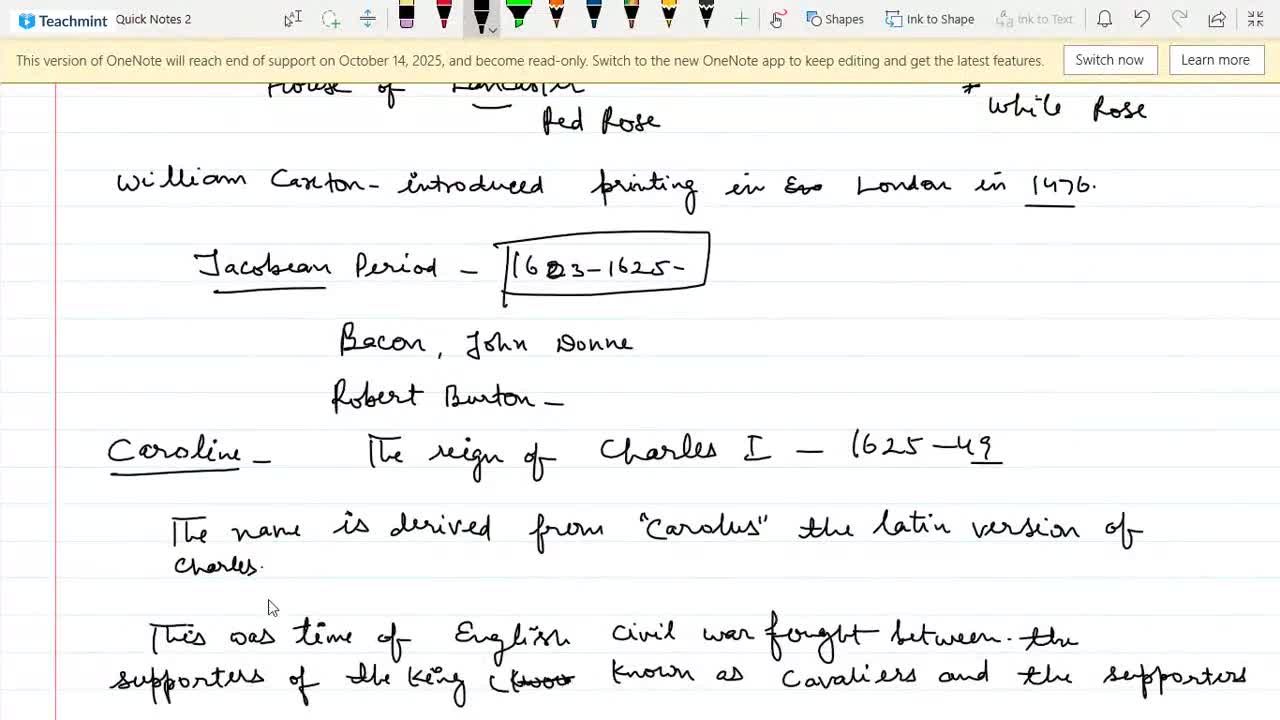 Teachmint Quick Notes 2 Shapes Ink to Shape Ink to Text
This version of OneNote will reach end of support on October 14, 2025, and become read-only. Switch to the new OneNote app to keep editing and get the latest features. Switch now Learn more
House of Lancaster
* White Rose
Red Rose
William Caxton - introduced printing in London in 1476.
Jacobean Period - 1603-1625-
Bacon, John Donne
Robert Burton -
Caroline - The reign of Charles I - 1625-49
The name is derived from "Carolus" the latin version of
Charles.
This was time of English civil war fought between the
supporters of the King ( known as Cavaliers and the supporters